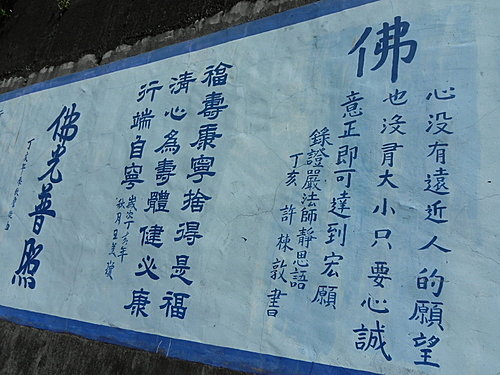 佛
心没有遠近人的願望
也沒有大小只要心誠
意正即可達到宏願
錄證嚴法師靜思語
丁亥 許棟敦書
福壽康寧捨得是福
清心為壽體健必康
行端自寧
歲次丁亥年
秋月
佛光普照